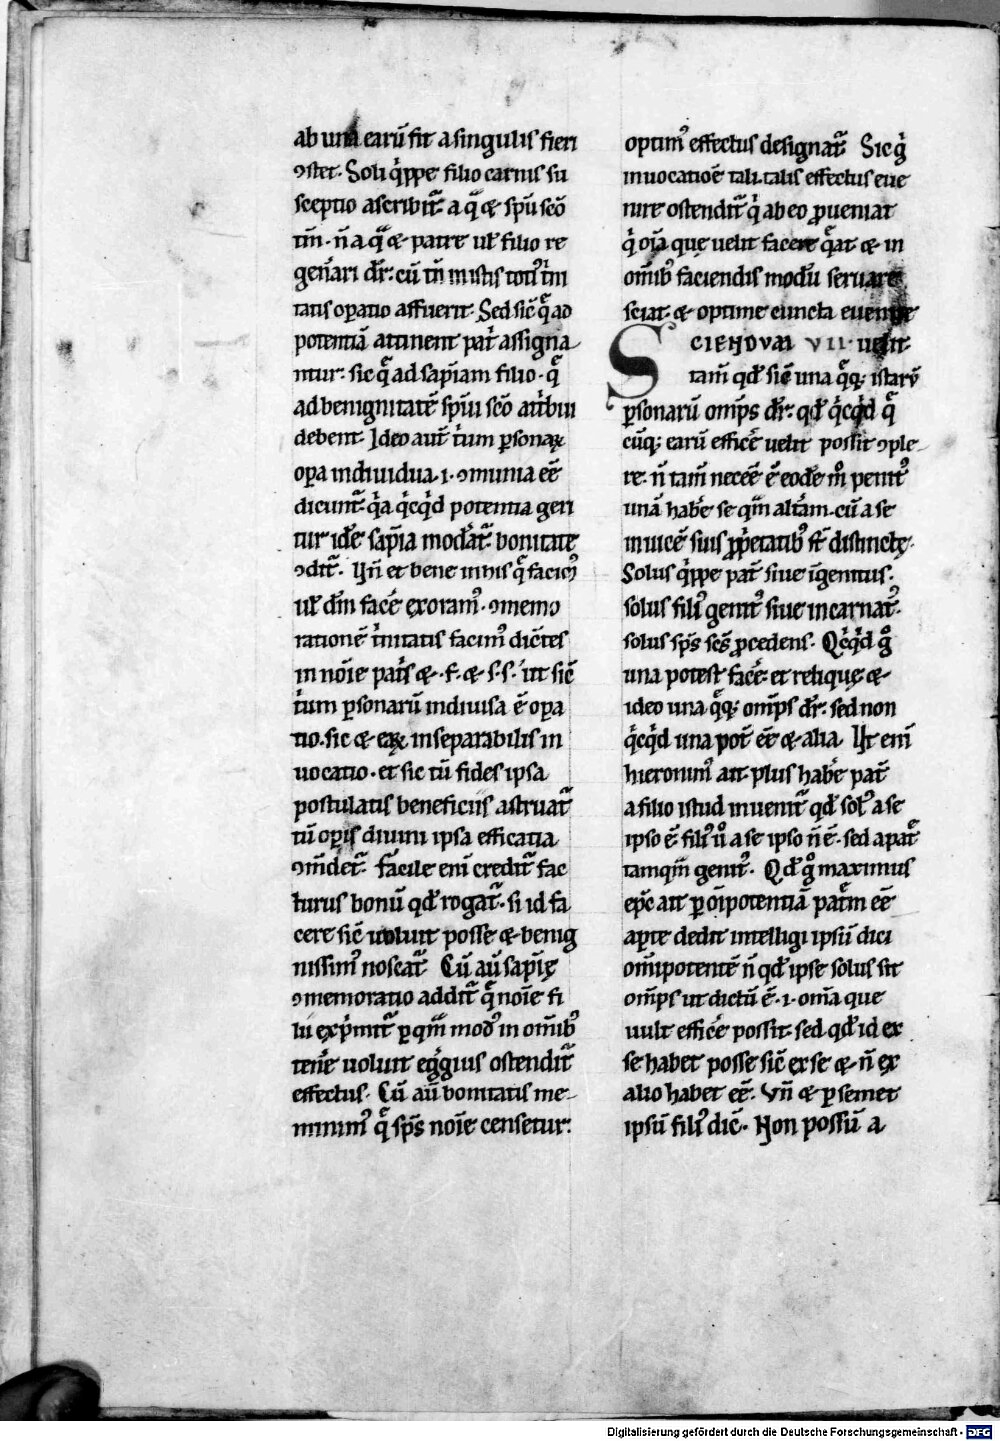 ab una earū fit a singulis fieri
ꝯstet. Soli q̇ppe filio carnis su
sceptio ascribit᷑ a q̄ & sp̄u scō
tm̄. n̄ a q̄ & patre ul̓ filio re
gen̓ari dr̄: cū tn̄ in istis toti᷒ t̓ni
tatis oꝑatio affuerit. Sed sic̄ q̄ ad
potentiā attinent pat̓ assigna-
ntur: sic q̄ ad sapīam filio. q̄
ad benignitatē spīui scō atibui
debent. Ideo aut̄ t̓um ꝑsonaꝝ
oꝑa indiuidua .i. ꝯmunia eē
dicunt᷑. q̓a q̇cq̇d potentia geri
tur idē sapīa modat᷑. bonitate
ꝯdit᷑. Hn̄ et bene in his q̄ facim᷒
ul̓ dm̄ facē exoram᷒. ꝯmemo
rationē t̓nitatis facim᷒ dicētes
in noīe pat̓s & .f. & .s.s. ut sic̄
t̓um ꝑsonarū indiuisa ē oꝑa
tio. sic & eaꝝ inseparabilis in
uocatio. et sic tū fides ipsa
postulatis beneficiis astruat᷑
tū oꝑis diuini ipsa efficatia
ꝯm̄det᷑. Facile enī credit᷑ fac
turus bonū qd̄ rogat᷑. si id fa
cere sic̄ uoluit posse & benig
nissim᷒ noscat᷑ Cū aū sapīę
ꝯmemoratio addit᷑ q̄ noīe fi
lii exp̓mit᷑ ꝑ qm̄ mod᷒ in om̄ib᷒
tenē uoluit egg̓ius ostendit᷑
effectus. Cū aū bonitatis me-
minim᷒ q̄ sp̄s noīe censetur:
optim᷒ effectus designat᷑ Sic g̓
inuocatioē tali. talis effectus eue
nire ostendit᷑ q̓ ab eo ꝓueniat
q̓ oīa que uelit facere q̄at & in
om̄ib᷒ faciendis modū seruare
sciat. & optime cuncta euenire
SCIENDUM VII. uelit:
tam̄ qd̄ sic̄ una q̄q; istarū
ꝑsonarū omp̄s dr̄: qd̄ q̇cq̇d q̄
cūq; earū efficē uelit possit ꝯple-
re: n̄ tam̄ necēē ē eodē mº penit᷒
unā habē se qm̄ altam. cū a se
inuicē suis ꝓp̓etatib᷒ st̄ distinctę.
Solus q̇ppe pat̄ siue īgenitus.
solus fili᷒ genit᷒ siue incarnat᷒.
solus sp̄s scs̄ ꝓcedens. Qc̓q̇d gº
una potest facē: et relique &
ideo una q̄q; omp̄s dr̄: sed non
q̇cq̇d una pot̄ eē & alia Ut enī
hieronim᷒ ait plus habē pat̄
a filio istud inuenit᷑ qd̄ sol᷒ a se
ipso ē fili᷒ uº a se ipso n̄ ē. sed a pat᷑
tamqm̄ genit᷒. Qd̄ gº maximus
epc̄ ait ꝑ oīpotentiā pat̄m eē
aꝑte dedit intelligi ipsū dici
om̄ipotentē n̄ qd̄ ipse solus sit
omp̄s ut dictū ē .i. om̄a que
uult efficē possit: sed qd̄ id ex
se habet posse sic̄ ex se & n̄ ex
alio habet eē. Vn̄ & ꝑ semet
ipsū fili᷒ dic̄. Non possū a
Digitalisierung gefördert durch die Deutsche Forschungsgemeinschaft - DFG